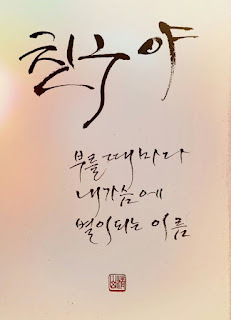 친구야
부를 때마다
내 가슴에
별이 되는 이름